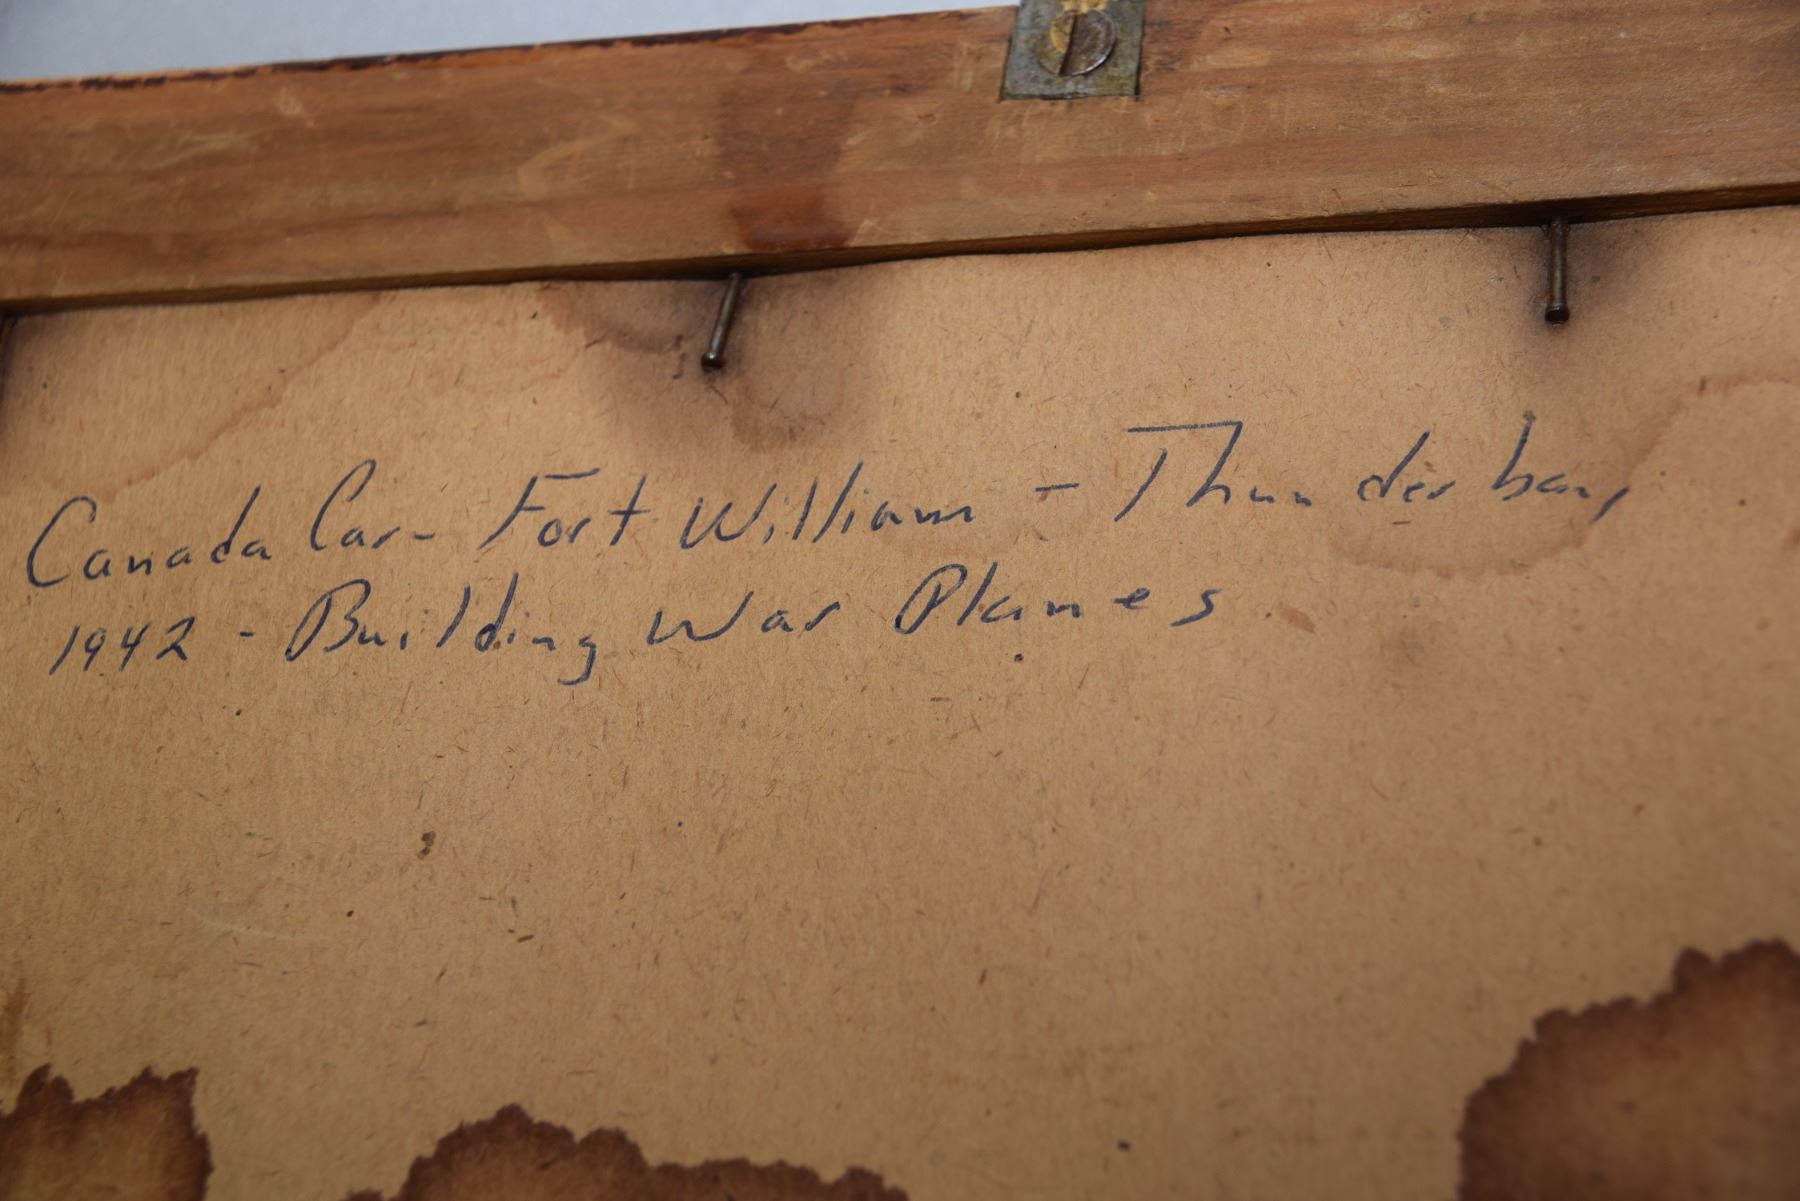 Canada Car - Fort William - Thunder bay
1942 - Building War Planes